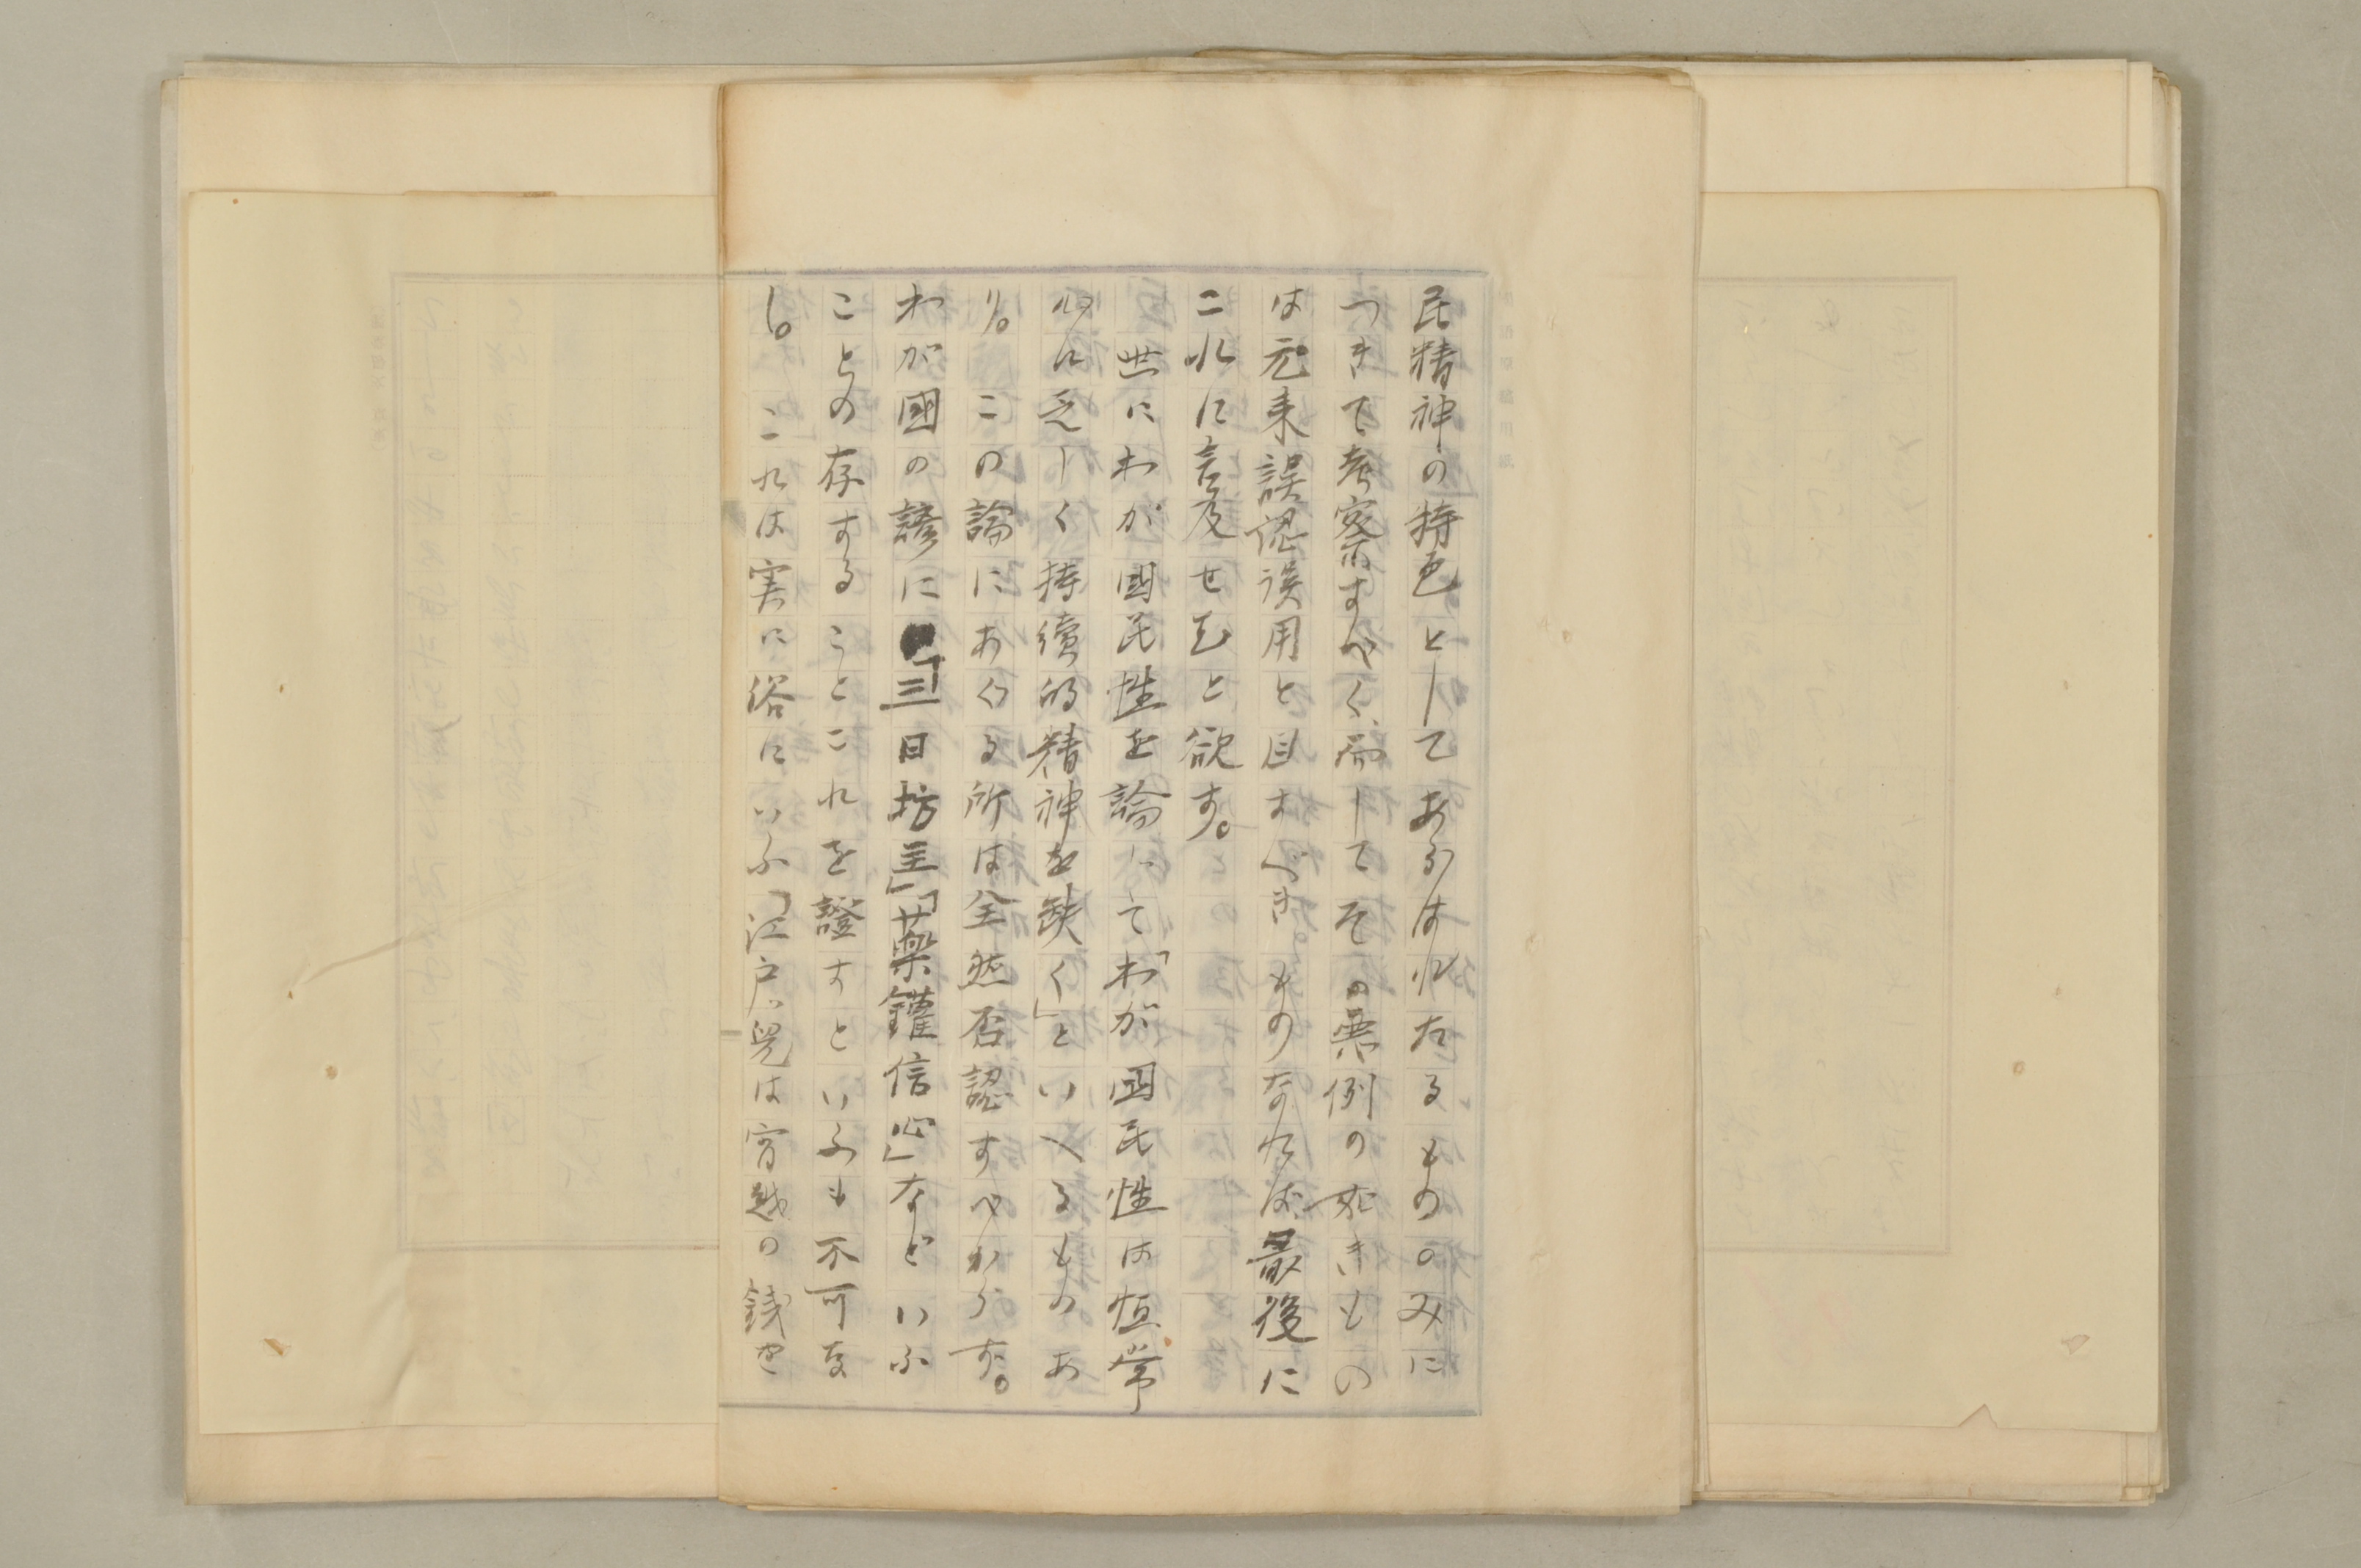 民精神の特色としてあらはれたるもののみに
つきて考察すべく、而してその悪例の如きもの
は元来誤認誤用と目すべきものなれば最後に
これに言及せむと欲す。
世にわが國民性を論じて「わが國民性は恒常
心に乏しく持續的精神を缺く」といへるものあ
り。この論にあぐる所は全然否認すべからず。
わが國の諺に「三日坊主」「藥鑵信心」などいふ
ことの存することこれを證すといふも不可な
し。これは実に俗にいふ「江戸ッ兒は宵越の銭を